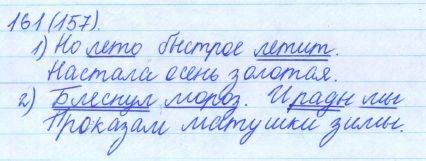 161(157).
1) Но лето быстрое летит.
Настала осень золотая.
2) Блеснул мороз. И рады мы
Проказам матушки зимы.